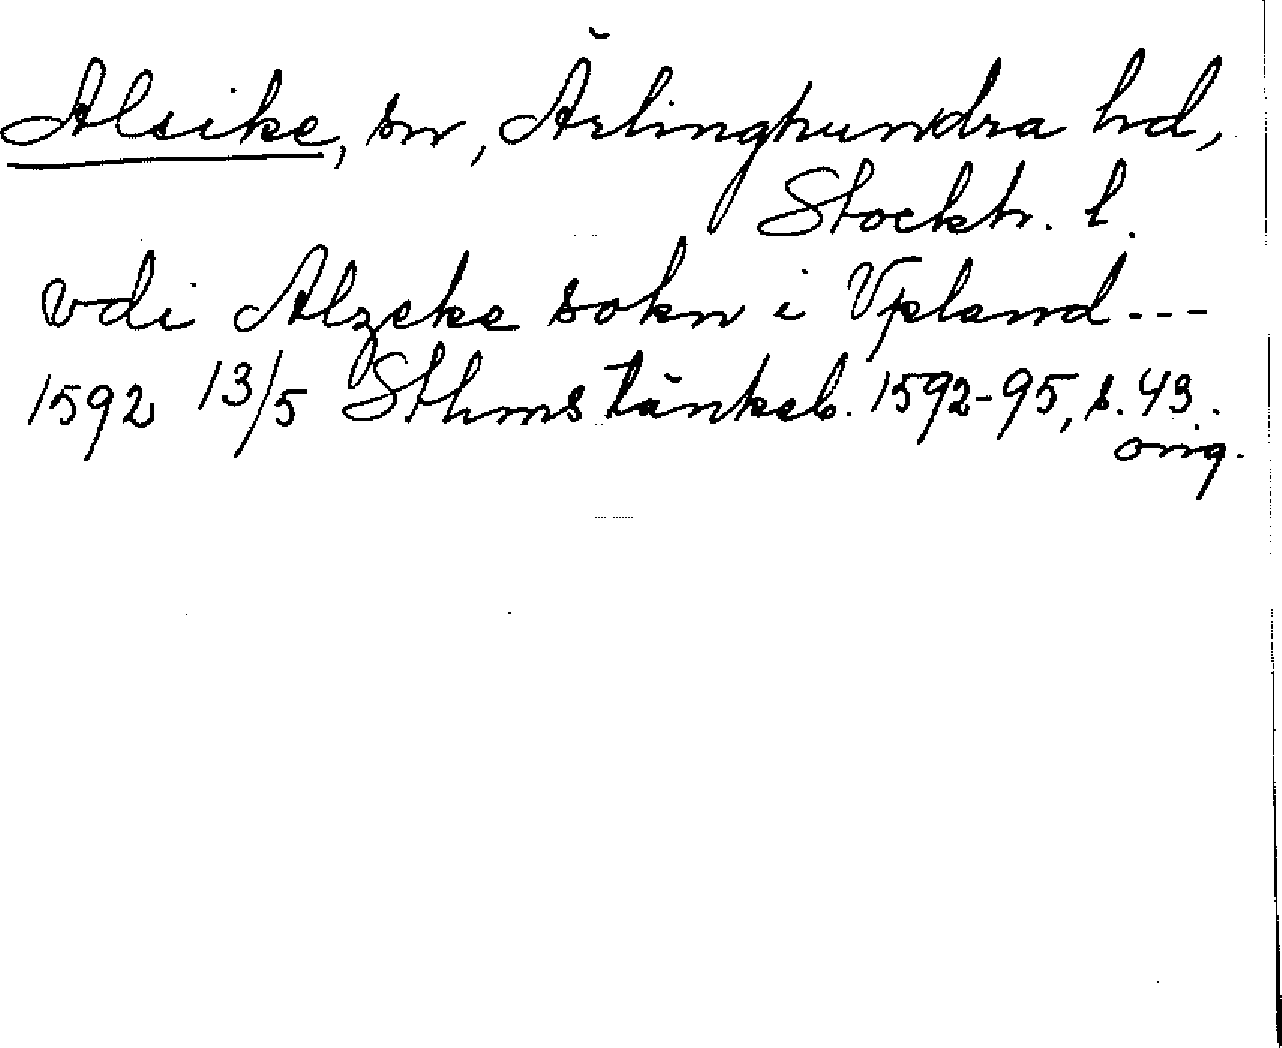 Alsike, sn, Ärlinghundra hd,
Stockh. l.
vdi Alzeke sokn i Vpland---
1592 13/5 Sthms tänkeb. 1592-95, s. 43.
orig.